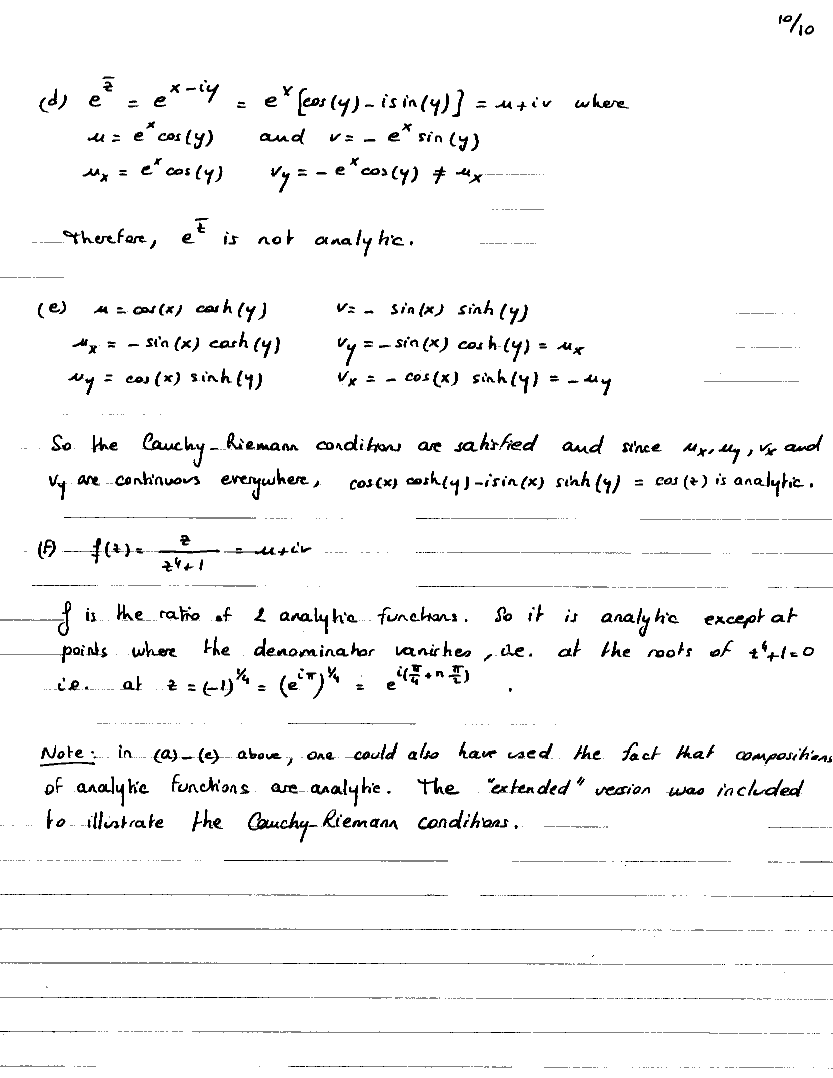 10/10
(d) e^z̅ = e^(x-iy) = e^x [cos(y) - i sin(y)] = u + iv where
u = e^x cos(y) and v = - e^x sin(y)
u_x = e^x cos(y) v_y = - e^x cos(y) ≠ u_x
Therefore, e^z̅ is not analytic.
(e) u = cos(x) cosh(y) v = - sin(x) sinh(y)
u_x = - sin(x) cosh(y) v_y = - sin(x) cosh(y) = u_x
u_y = cos(x) sinh(y) v_x = - cos(x) sinh(y) = - u_y
So the Cauchy-Riemann conditions are satisfied and since u_x, u_y, v_x and
v_y are continuous everywhere, cos(x) cosh(y) - i sin(x) sinh(y) = cos(z) is analytic.
(f) f(z) = z/(z^4+1) = u + iv
f is the ratio of 2 analytic functions. So it is analytic except at
points where the denominator vanishes, i.e. at the roots of z^4+1=0
i.e. at z = (-1)^(1/4) = (e^(iπ))^(1/4) = e^(i(π/4 + n π/2)) .
Note: in (a)-(e) above, one could also have used the fact that compositions
of analytic functions are analytic. The "extended" version was included
to illustrate the Cauchy-Riemann conditions.